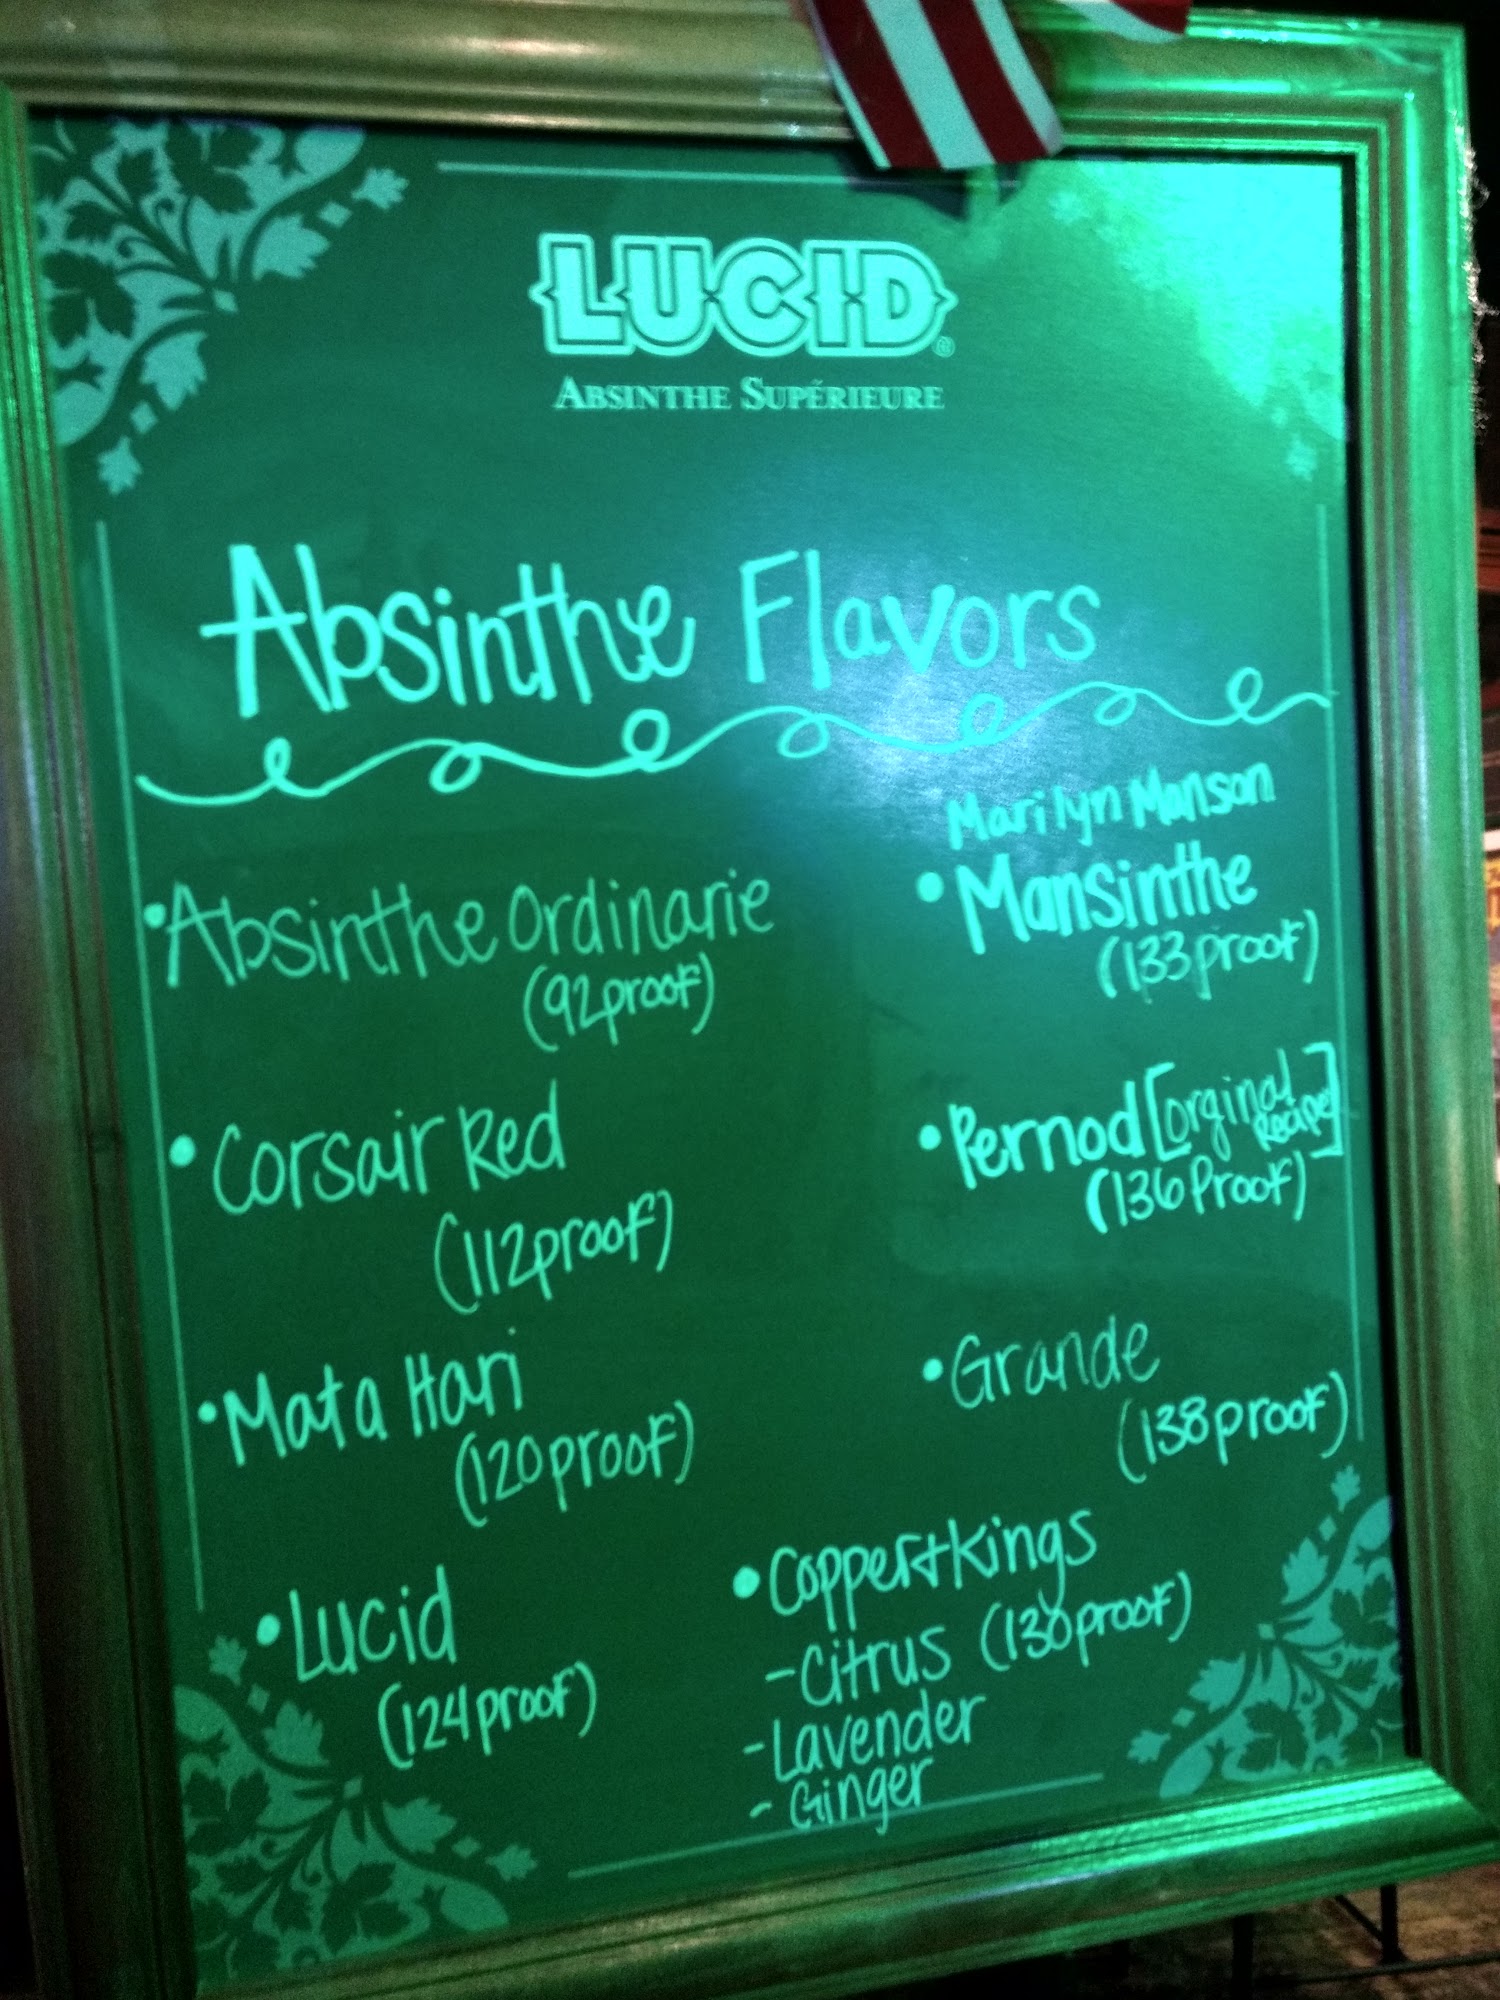 LUCID®
ABSINTHE SUPÉRIEURE
Absinthe Flavors
• Absinthe Ordinarie
(92proof)
• Corsair Red
(112proof)
• Mata Hari
(120proof)
• Lucid
(124proof)
Marilyn Manson
• Mansinthe
(133proof)
• Pernod [orginal
Recipe]
(136 Proof)
• Grande
(138proof)
• Copper+Kings
- Citrus (130proof)
- Lavender
- Ginger